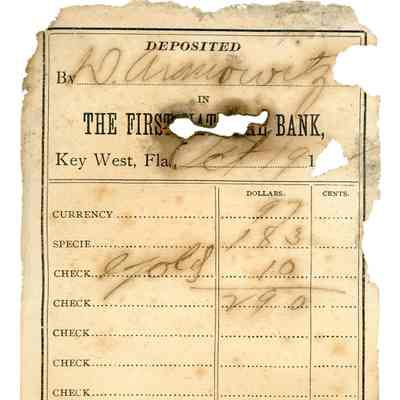 DEPOSITED
By D. Aronowitz
IN
THE FIRST NAT AL BANK,
Key West, Fla., Oct 19 1
DOLLARS. CENTS.
CURRENCY 97
SPECIE 183
CHECK gold 10
CHECK 290
CHECK
CHECK
CHECK